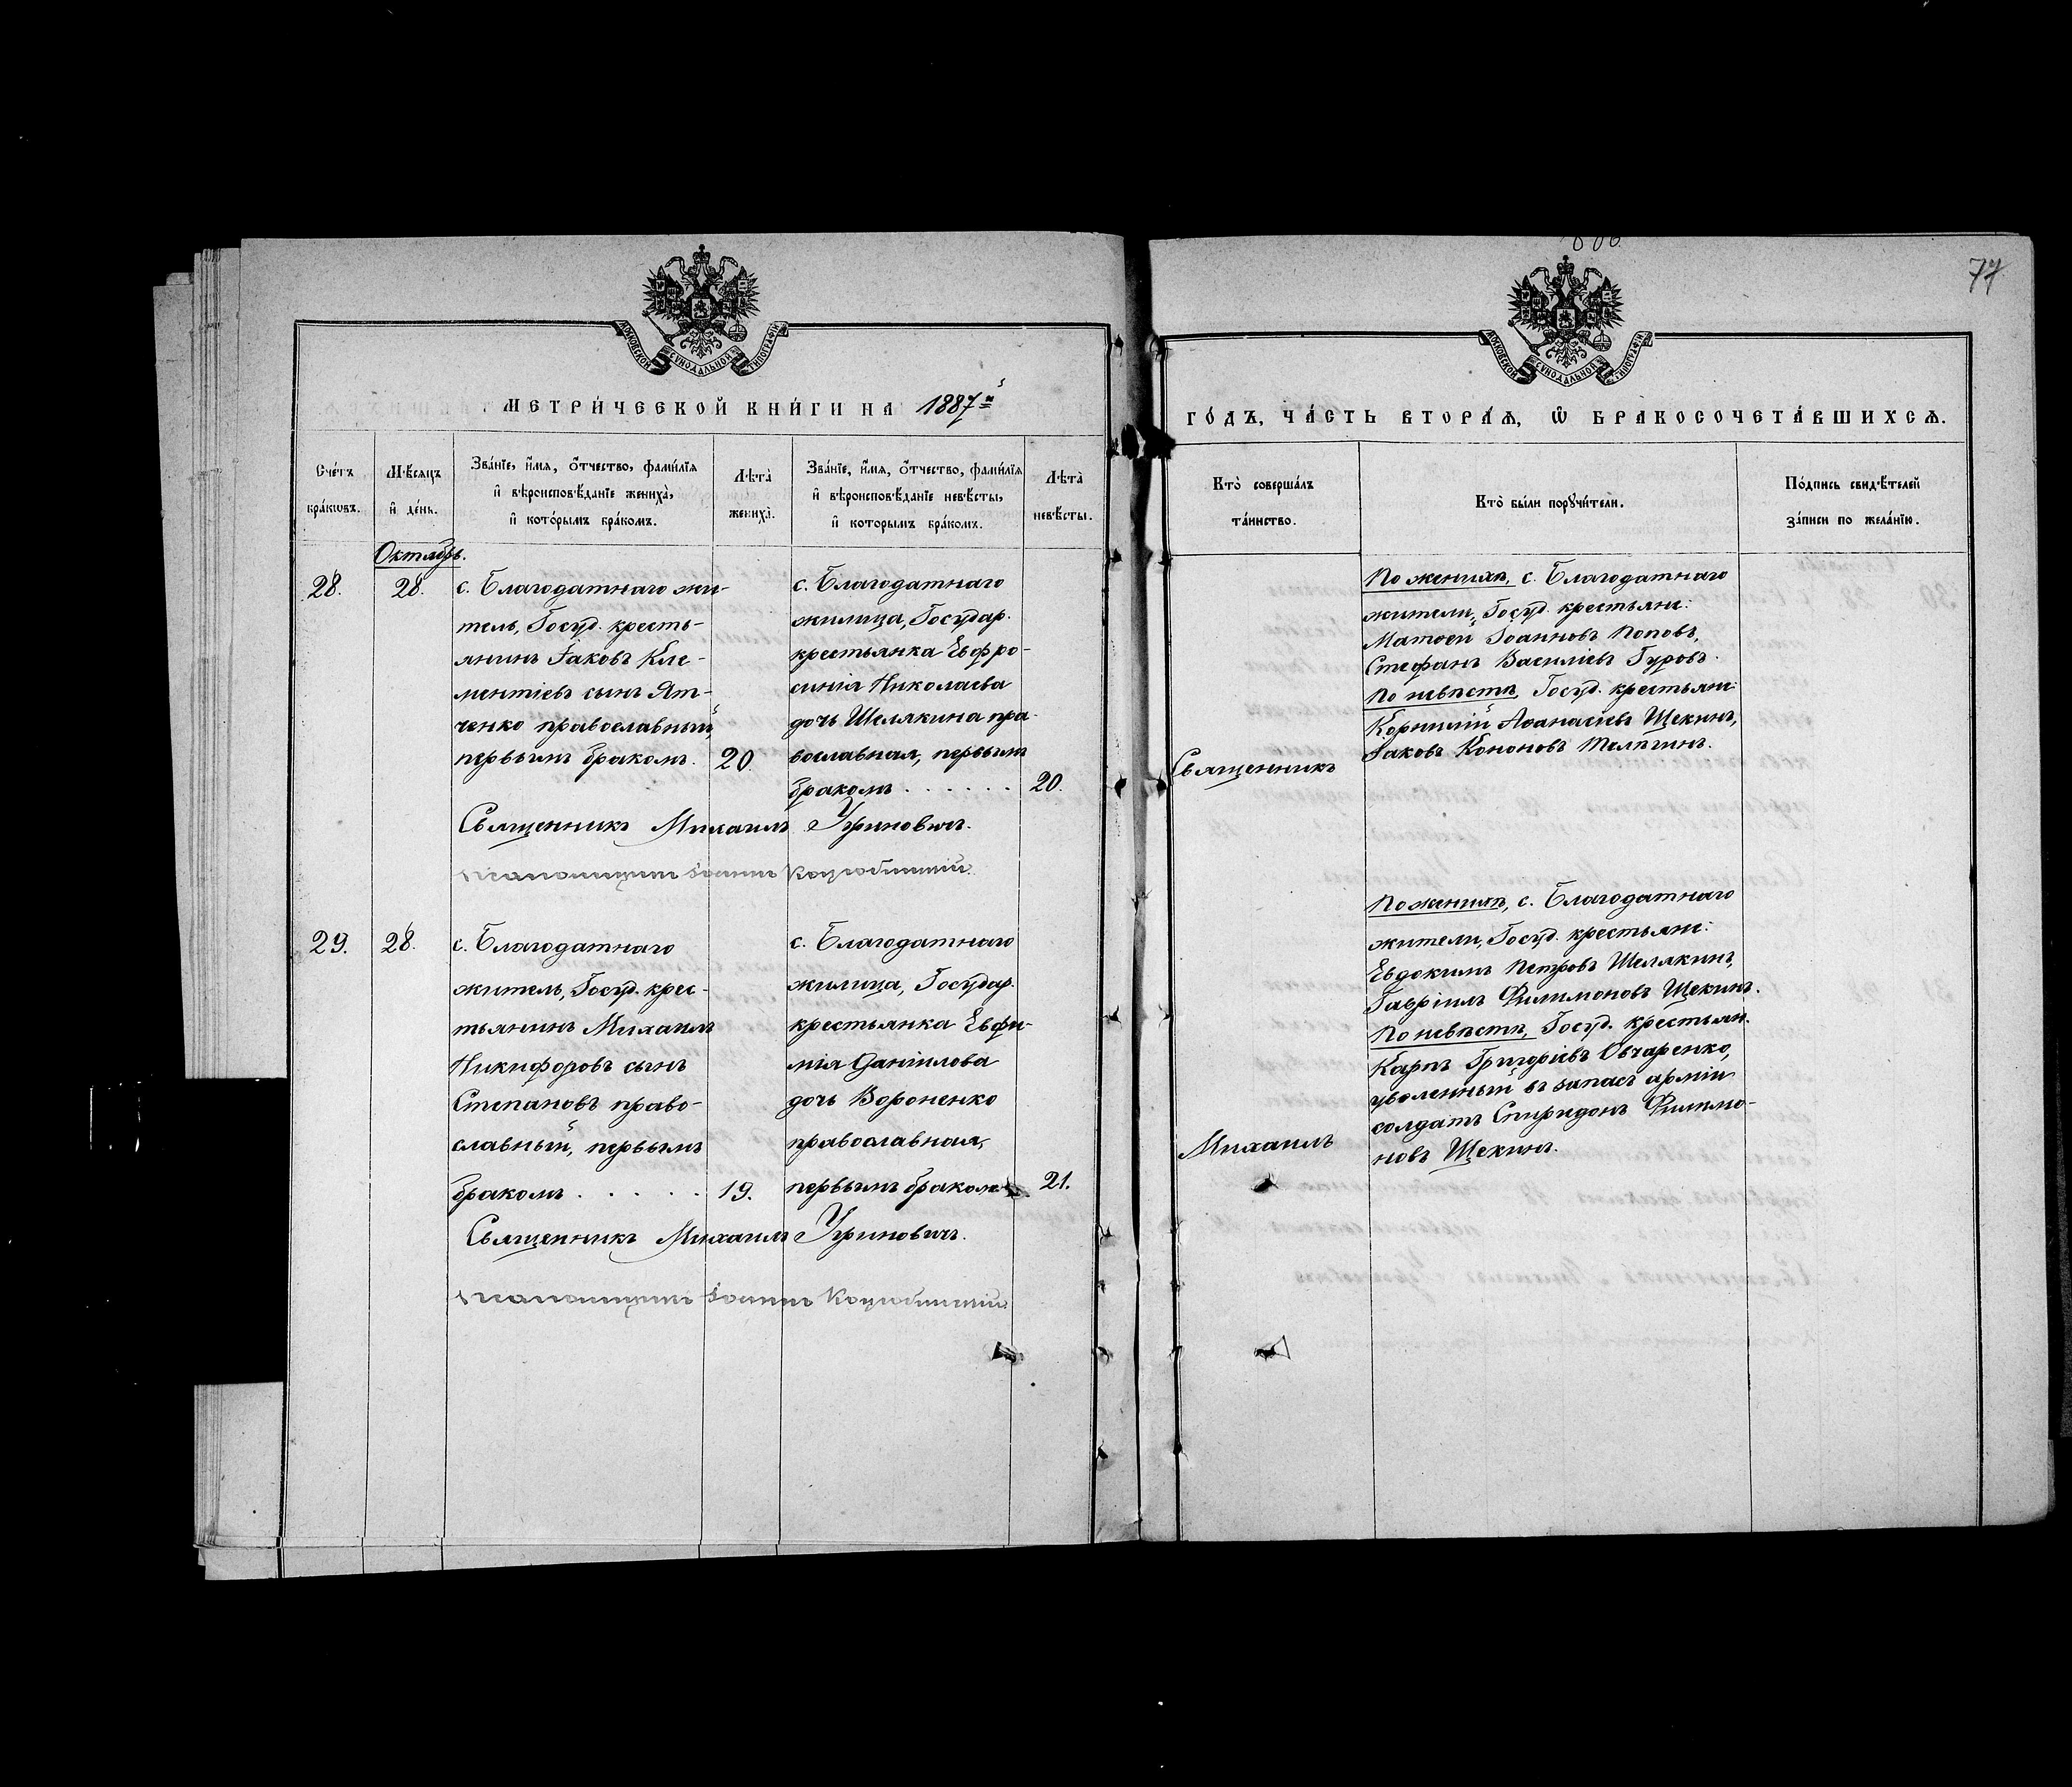 77
МОСКОВСКОЙ СѴНОДАЛЬНОЙ ТИПОГРАФІИ
МОСКОВСКОЙ СѴНОДАЛЬНОЙ ТИПОГРАФІИ
МЕТРИ́ЧЕСКОЙ КНИ́ГИ НА 1887й
ГО́ДЪ, ЧА́СТЬ ВТОРА́Я, Ѽ БРАКОСОЧЕТА́ВШИХСѦ.
Сче́тъ
бра́кѡвъ.
Мѣ́сяцъ
и҆ де́нь.
Зва́нїе, и҆́мя, ѻ҆́тчество, фами́лїя
и҆ вѣроисповѣ́данїе жениха̀,
и҆ кото́рымъ бра́комъ.
Лѣта̀
жениха̀.
Зва́нїе, и҆́мя, ѻ҆́тчество, фами́лїя
и҆ вѣроисповѣ́данїе невѣ́сты,
и҆ которымъ бра́комъ.
Лѣта̀
невѣ́сты.
Кто̀ соверша́лъ
та́инство.
Кто̀ бы́ли порꙋчи́тели.
По́дпись свидѣ́телей
за́писи по жела́нїю.
Октябрь.
28.
28.
с. Благодатнаго жи-
тель, Госуд. кресть-
янинъ Іаковъ Кле-
ментіевъ сынъ Ят-
ченко православный,
первымъ бракомъ.
20.
с. Благодатнаго
жилица, Государ.
крестьянка Евфро-
синія Николаева
дочь Шелякина пра-
вославная, первымъ
бракомъ . . . . . .
20.
Священникъ Михаилъ Угриновичъ.
Псаломщикъ Іоаннъ Коцюбинскій.
Священникъ
По женихѣ, с. Благодатнаго
жители, Госуд. крестьяне:
Матѳей Іоанновъ Поповъ,
Стефанъ Василіевъ Гуровъ.
По невѣстѣ, Госуд. крестьяне:
Корнилій Аѳанасіевъ Щекинъ,
Іаковъ Кононовъ Телѣгинъ.
29.
28.
с. Благодатнаго
житель, Госуд. крес-
тьянинъ Михаилъ
Никифоровъ сынъ
Степановъ право-
славный, первымъ
бракомъ . . . . .
19.
с. Благодатнаго
жилица, Государ.
крестьянка Евфи-
мія Даніилова
дочь Вороненко
православная,
первымъ бракомъ.
21.
Священникъ Михаилъ Угриновичъ.
Псаломщикъ Іоаннъ Коцюбинскій
Михаилъ
По женихѣ, с. Благодатнаго
жители, Госуд. крестьяне:
Евдокимъ Петровъ Шелякинъ,
Гавріилъ Филимоновъ Щекинъ.
По невѣстѣ, Госуд. крестьян.
Карпъ Григоріевъ Овчаренко,
уволенный въ запасъ арміи
солдатъ Спиридонъ Филимо-
новъ Щекинъ.